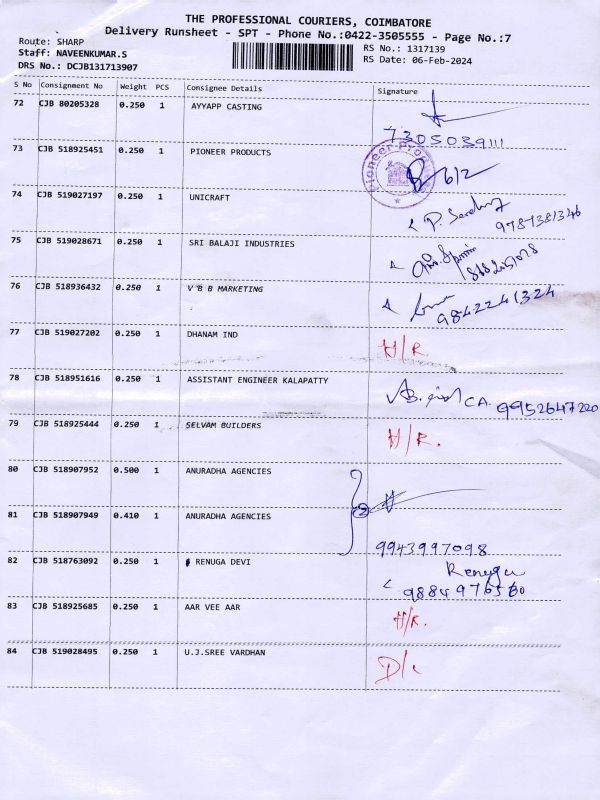 THE PROFESSIONAL COURIERS, COIMBATORE
Delivery Runsheet - SPT - Phone No.:0422-3505555 - Page No.:7
Route: SHARP
RS No.: 1317139
Staff: NAVEENKUMAR.S
RS Date: 06-Feb-2024
DRS No.: DCJB131713907
S No Consignment No Weight PCS Consignee Details Signature
72 CJB 80205328 0.250 1 AYYAPP CASTING
7305039111
73 CJB 518925451 0.250 1 PIONEER PRODUCTS
Pioneer
6/2
74 CJB 519027197 0.250 1 UNICRAFT
P.
75 CJB 519028671 0.250 1 SRI BALAJI INDUSTRIES
76 CJB 518936432 0.250 1 V B B MARKETING
9842241324
77 CJB 519027202 0.250 1 DHANAM IND H/R
78 CJB 518951616 0.250 1 ASSISTANT ENGINEER KALAPATTY
CA. 9952647220
79 CJB 518925444 0.250 1 SELVAM BUILDERS H/R.
80 CJB 518907952 0.500 1 ANURADHA AGENCIES
2
81 CJB 518907949 0.410 1 ANURADHA AGENCIES
9943997098
82 CJB 518763092 0.250 1 RENUGA DEVI Renuga
83 CJB 518925685 0.250 1 AAR VEE AAR H/R.
84 CJB 519028495 0.250 1 U.J.SREE VARDHAN D/L